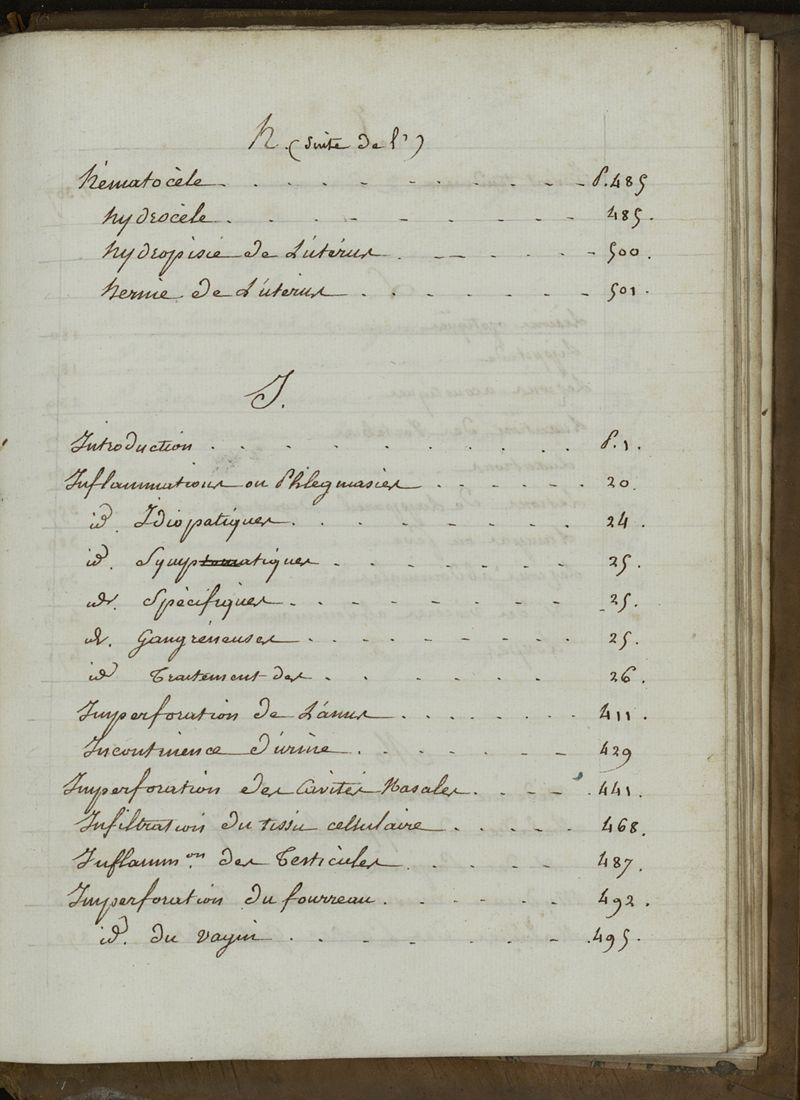 h. (Suite de l')
hématocèle . . . . - - - - - . - - P. 485
hydrocèle . . . . - . - - . - - 485.
hydropisie de L'utérus . - - - . . - - 500.
hernie de L'utérus . . . . - - - - 501.
I.
Introduction . . . . . . . . . . . P. 1.
Inflammations ou Phlegmasies . . . . . . 20.
id. Idiopatiques . . . . . - - - 24.
id. Symptomatiques . . - . - - - 25.
id. Spécifiques . - - - - - - - 25.
id. Gangréneuses . . . - - - - - 25.
id Traitement des . . . . . . . 26.
Imperforation de L'anus . . . . . . . 411.
Incontinence d'urine . . . . . - - 429
Imperforation des Cavités Nasales . . - - - 441.
Infiltration du tissu cellulaire . . . . . 468.
Inflamm.on des Testicules . . . . . . 487.
Imperforation du fourreau . . . - - - - 492.
id. du vagin . . . . . . - - 495.